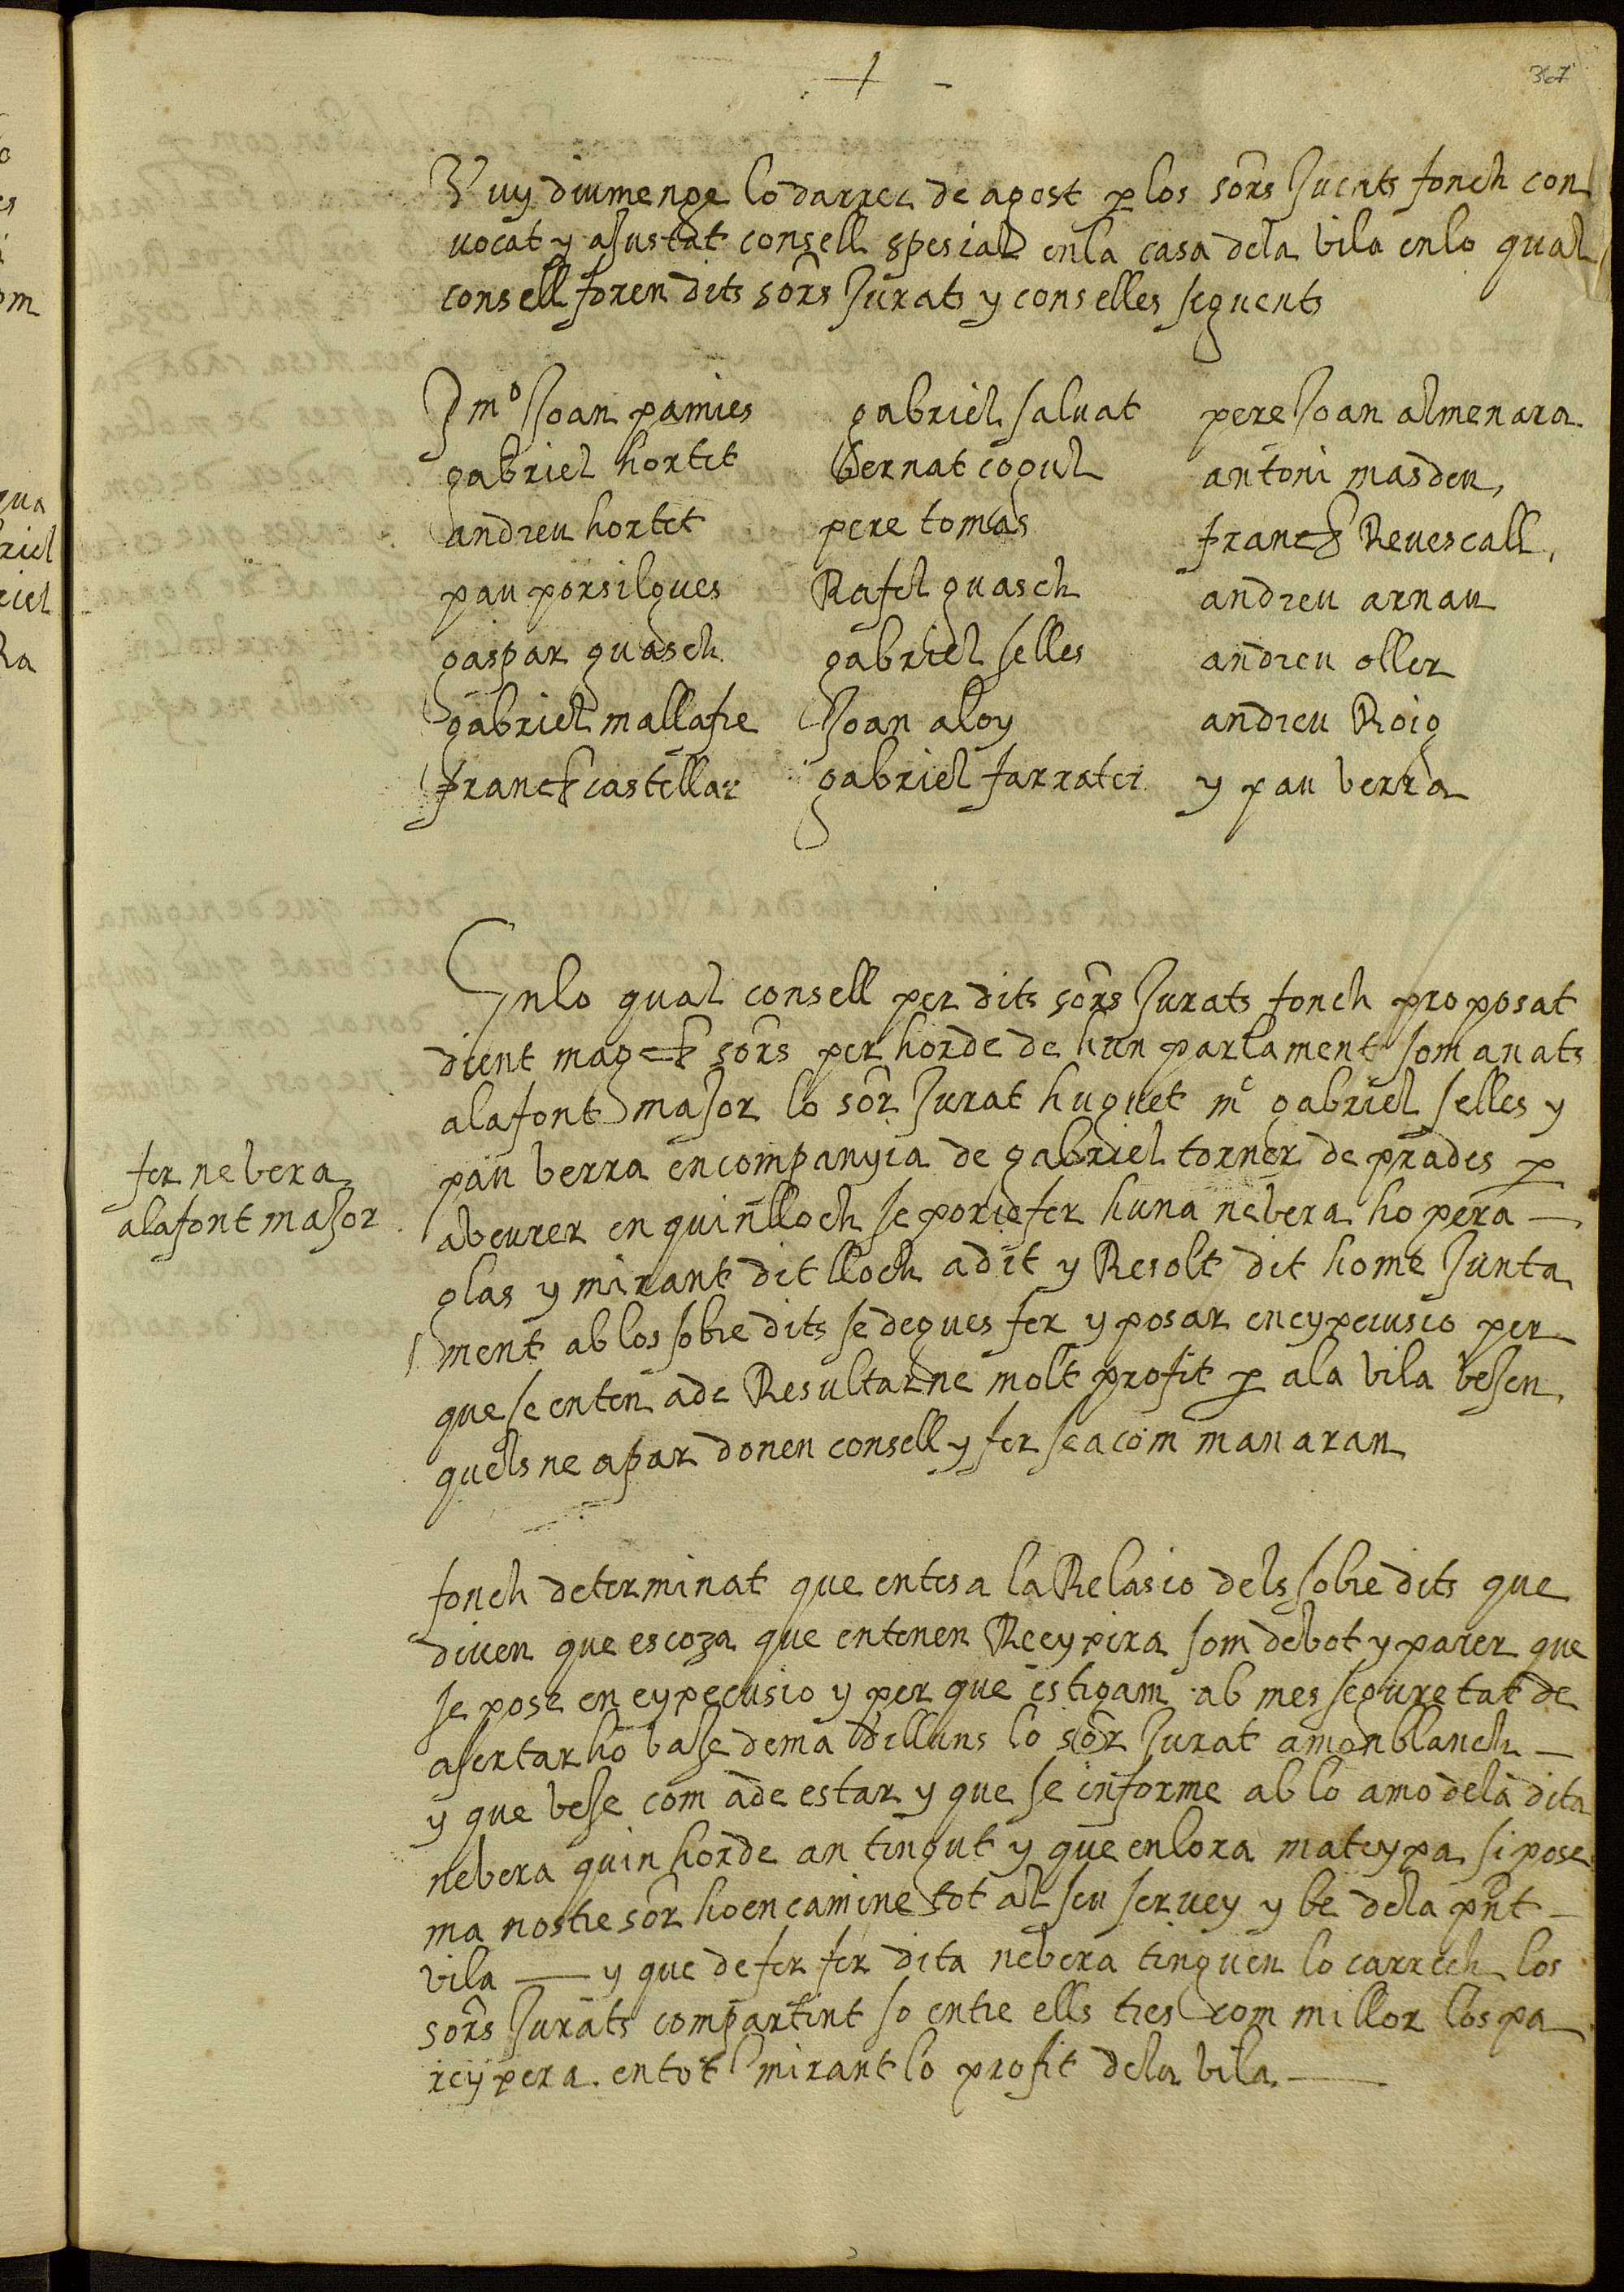 367
Vuy diumenge lo darrer de agost p los sors Jurats fonch con
vocat y ajustat consell spesial en la casa dela vila en lo qual
consell foren dits sors Jurats y conselles seguents
mº Joan pamies
gabriel hortet
andreu hortet
pau porsilgues
gaspar guasch
gabriel mallafre
franch castellar
gabriel saluat
bernat cogul
pere tomas
Rafel guasch
gabriel selles
Joan aloy
gabriel farrater
pere Joan almenara
antoni masdeu
franch Reuescall
andreu arnau
andreu oller
andreu Roig
y pau berra
En lo qual consell per dits sors Jurats fonch proposat
dient magchs sors per horde de hun parlament som anats
ala font major lo sor Jurat huguet mº gabriel selles y
pau berra en companyia de gabriel torner de prades p
fer nebera
ala font major
abeurer en quin lloch se poria fer huna nebera ho pera
glas y mirant dit lloch a dit y Resolt dit home Junta
ment ab los sobre dits se degues fer y posar en eypecusio per
que se enten a de Resultarne molt profit p ala vila vejen
quels ne apar donen consell y fer sea com manaran
fonch determinat que entesa la Relasio dels sobre dits que
diuen que es coza que entenen Reeypira som de bot y parer que
se pose en eypecusio y per que estigam ab mes seguretat de
asertar ho baje dema dilluns lo sor Jurat a monblanch
y que beje com a de estar y que se informe ab lo amo dela dita
nebera quin horde an tingut y que en lora mateypa si pose
ma nostre sor ho encamine tot al seu seruey y be dela pnt
vila — y que de fer fer dita nebera tinguen lo carrech los
sors Jurats compartint so entre ells tres com millor los pa
reypera en tot mirant lo profit dela vila